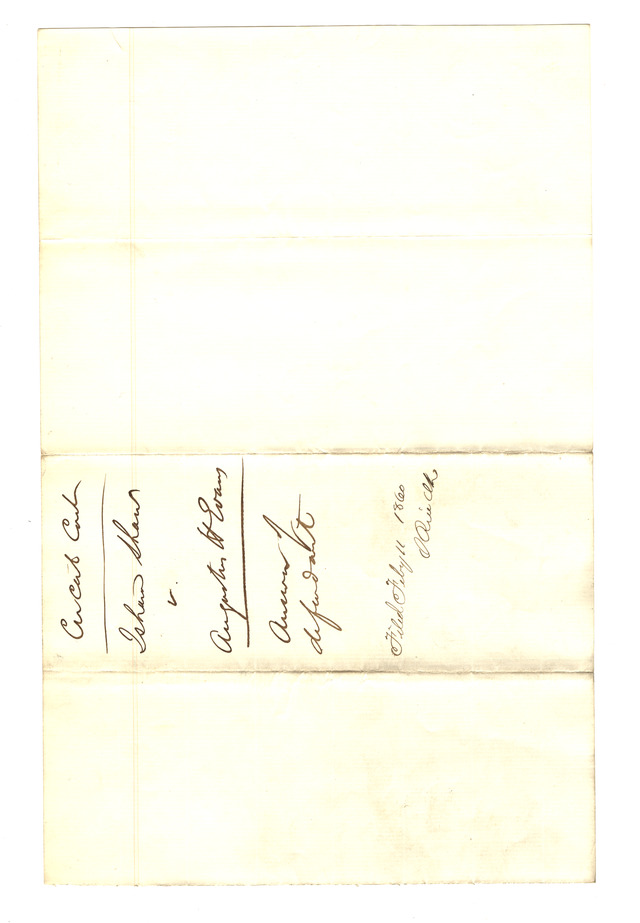 Circuit Court
Isham Shaw
v.
Augustus H Evans
Answer of
defendant
Filed Feby 11 1860
Clk